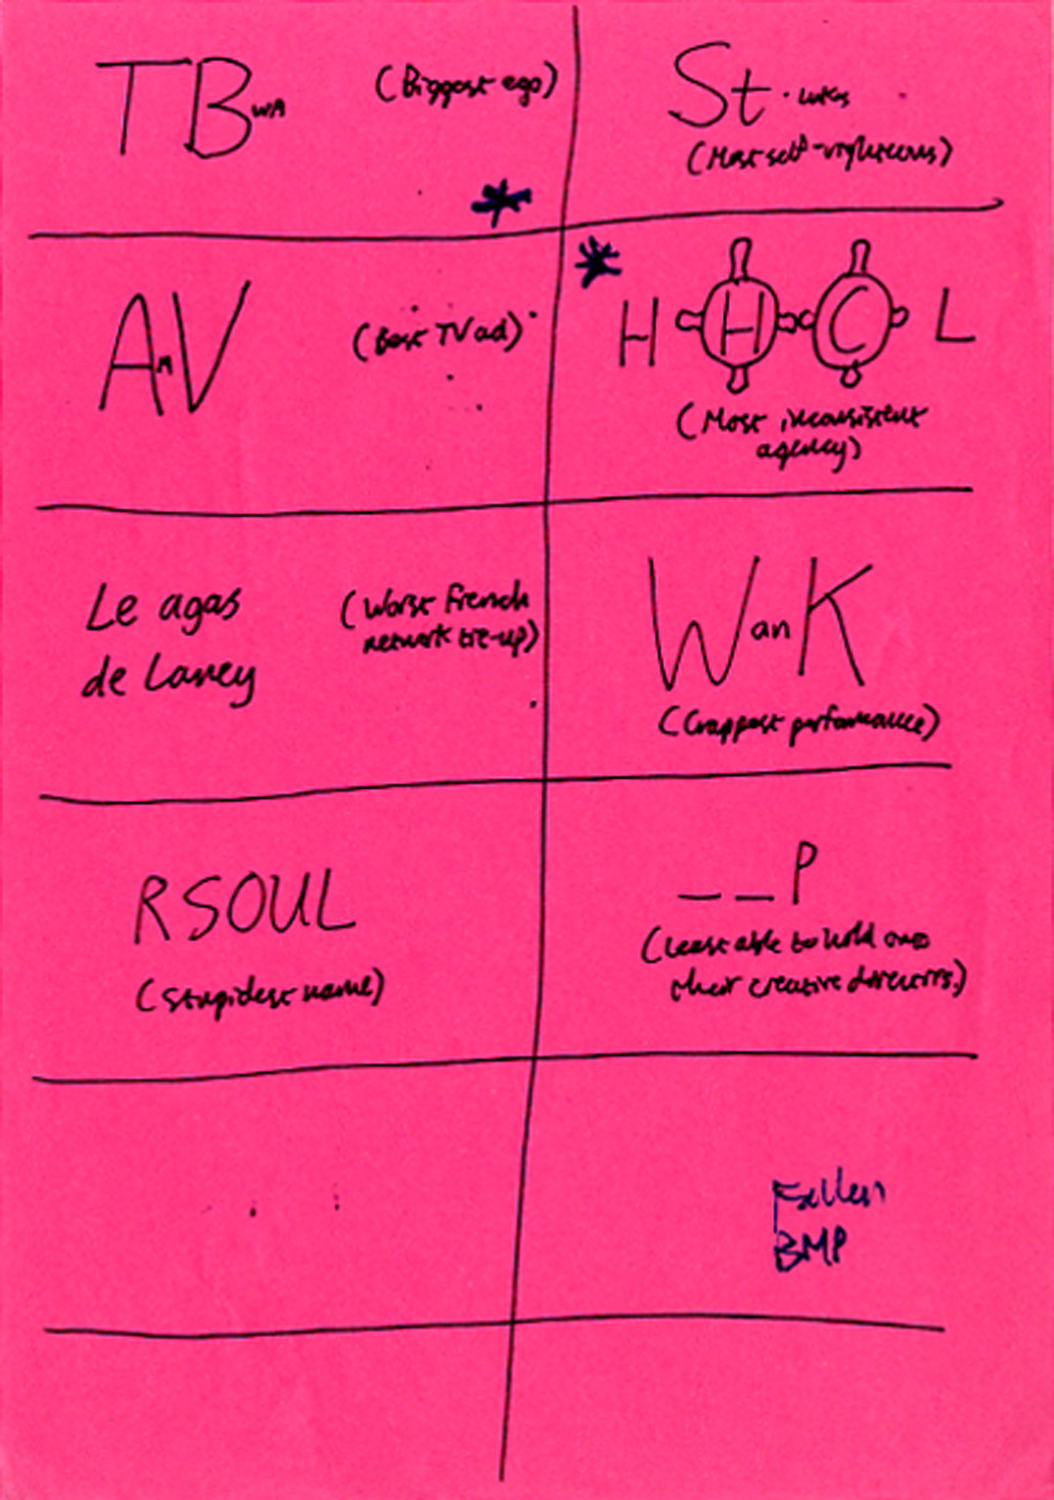 TBWA (Biggest ego)
St. Lukes
(Most self-righteous)
AMV (Best TV ad)
HHCL
(Most inconsistent
agency)
Le agas (Worst French
de Laney network tie-up)
W an K
(Crappest performance)
RSOUL
(Stupidest name)
_ _ P
(Least able to hold onto
their creative directors.)
Fallon
BMP